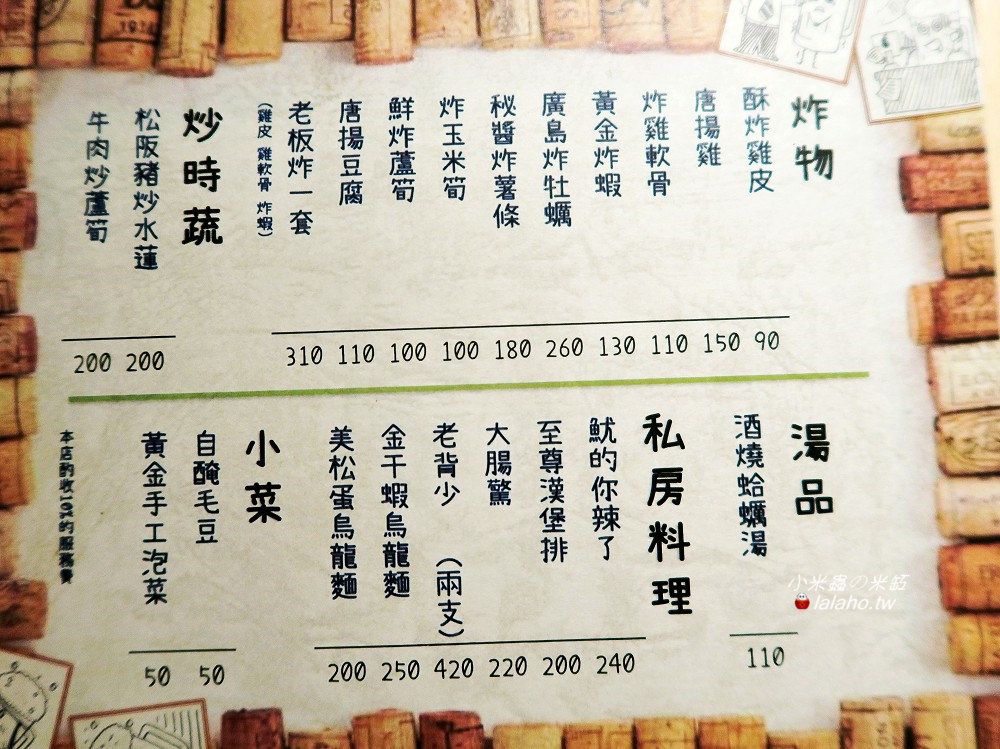 炸物
酥炸雞皮 90
唐揚雞 150
炸雞軟骨 110
黃金炸蝦 130
廣島炸牡蠣 260
秘醬炸薯條 180
炸玉米筍 100
鮮炸蘆筍 100
唐揚豆腐 110
老板炸一套 310
(雞皮 雞軟骨 炸蝦)
炒時蔬
松阪豬炒水蓮 200
牛肉炒蘆筍 200
湯品
酒燒蛤蠣湯 110
私房料理
魷的你辣了 240
至尊漢堡排 200
大腸驚 220
老背少 (兩支) 420
金干蝦烏龍麵 250
美松蛋烏龍麵 200
小菜
自醃毛豆 50
黃金手工泡菜 50
本店酌收10%的服務費
小米蟲の米缸
lalaho.tw